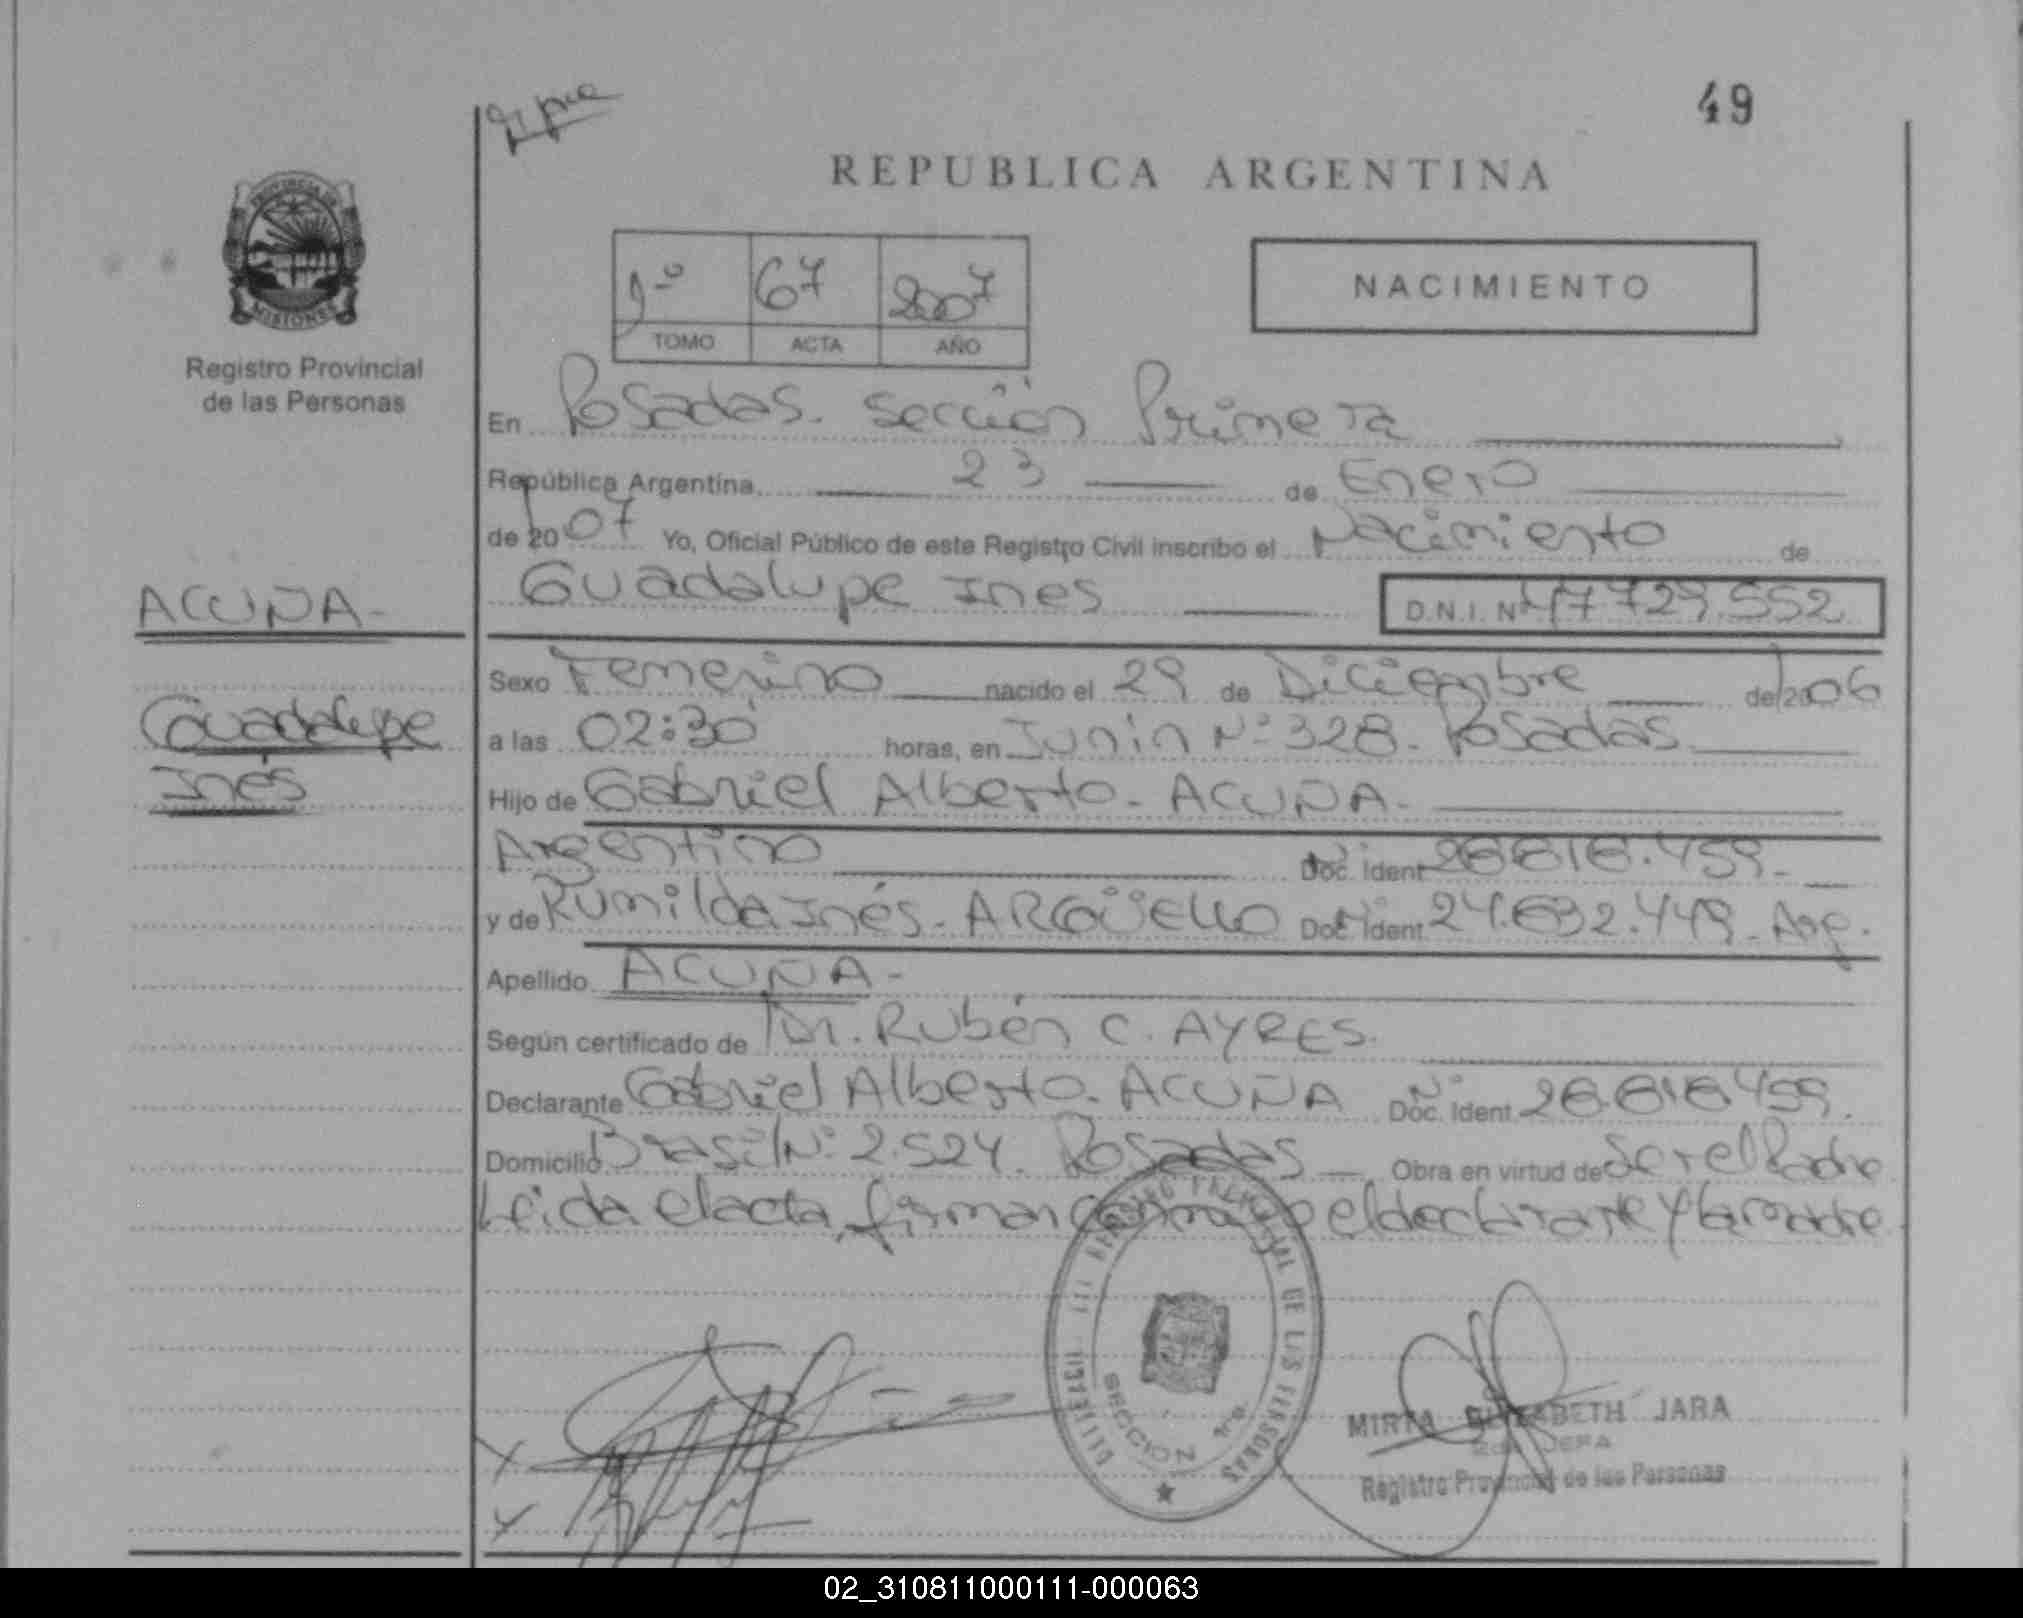 49
REPUBLICA ARGENTINA
PROVINCIA DE
MISIONES
Registro Provincial
de las Personas
1º 67 2007
TOMO ACTA AÑO
NACIMIENTO
En Posadas. Sección Primera
República Argentina, 23 de Enero
de 2007 Yo, Oficial Público de este Registro Civil inscribo el Nacimiento de
Guadalupe Ines D.N.I. Nº 47.729.552
ACUÑA-
Guadalupe
Inés
Sexo Femenino nacido el 29 de Diciembre de 2006
a las 02:30 horas, en Junin Nº 328. Posadas.
Hijo de Gabriel Alberto- ACUÑA-
Argentino Doc. Ident 26.616.459-
y de Rumilda Inés- ARGÜELLO Doc. Ident 24.632.449- Arg.
Apellido ACUÑA-
Según certificado de Dr. Rubén C. AYRES.
Declarante Gabriel Alberto- ACUÑA Doc. Ident. 26.616.459.
Domicilio Brasil Nº 2.524. Posadas Obra en virtud de Ser el Padre
Leida el acta, firman conmigo el declarante y la madre
REGISTRO PROVINCIAL DE LAS PERSONAS
SECCION 1ra.
MIRTA ELIZABETH JARA
2da JEFA
Registro Provincial de las Personas
02_310811000111-000063